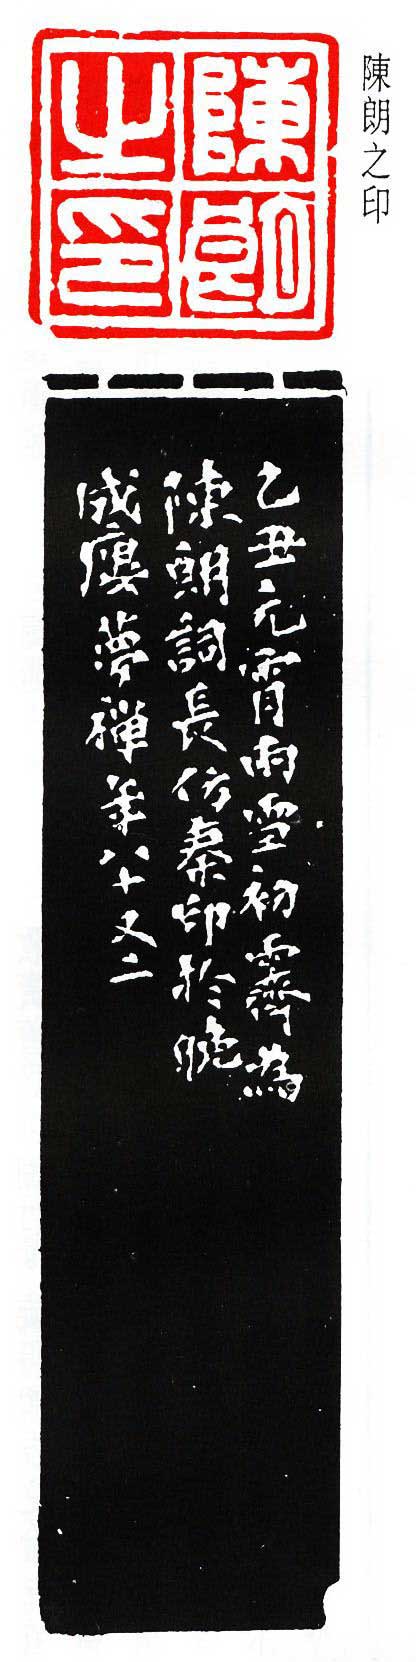 陳朗之印
陳朗
之印
乙丑元宵雨雪初霽為
陳朗詞長仿秦印於晚
成廔夢禪年八十又二